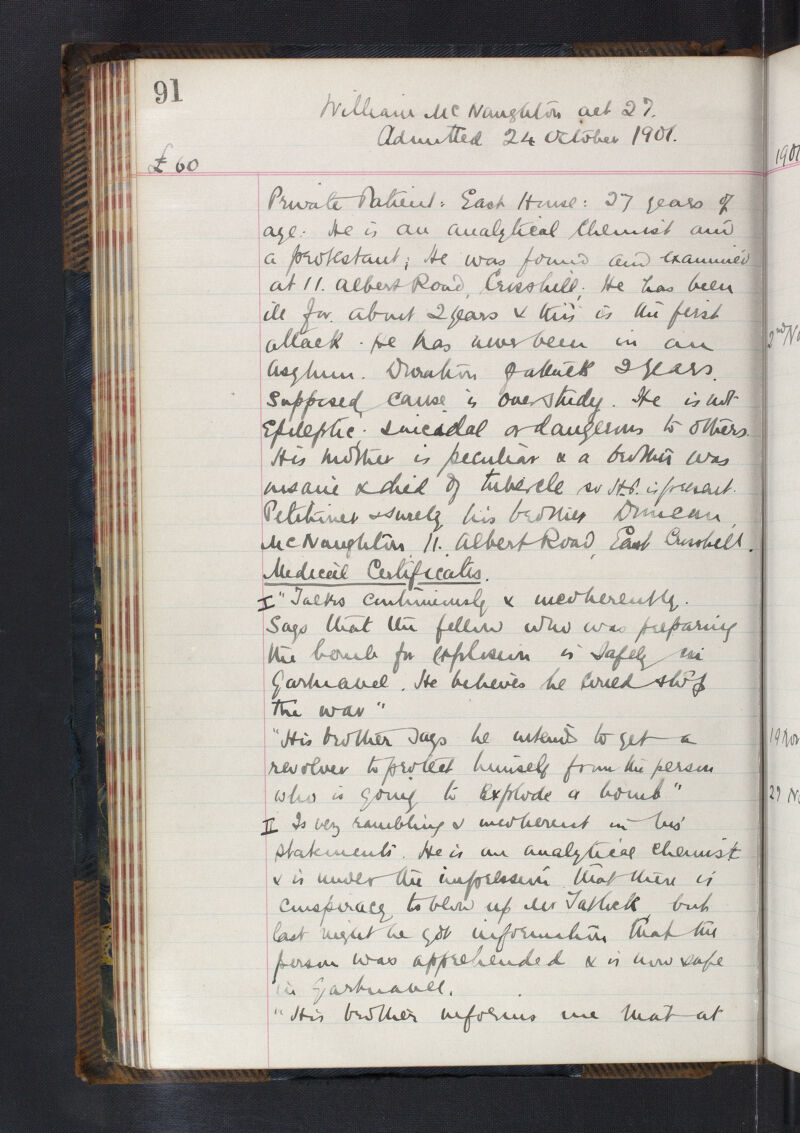 91
William McNaughton aet 27.
Admitted 24 October 1901.
£60
Private Patient: East House: 27 years of
age. He is an analytical Chemist and
a protestant; He was found and examined
at 11. Albert Road, Crosshill. He has been
ill for about 2 years & this is the first
attack. He has never been in an
Asylum. Duration of attack 2 years.
Supposed cause is overstudy. He is not
Epileptic. suicidal or dangerous to others.
His mother is peculiar & a brother was
insane & died of tubercle so H.P. is present.
Petitioner & surety his brother Duncan
McNaughton, 11. Albert Road, East Crosshill.
Medical Certificates.
I "Talks continuously & incoherently.
Says that the fellow who was preparing
the bomb for explosion is safely in
Gartnavel. He believes he could stop
the war"
"His brother says he intends to get a
revolver to protect himself from the person
who is going to explode a bomb"
II Is very rambling & incoherent in his
statements. He is an analytical chemist
& is under the impression that there is
conspiracy to blow up Mr Tatlock but
last night he got information that the
person was apprehended & is now safe
in Gartnavel.
"His brother informs me that at
1901
2nd No
19 Nov
27 No